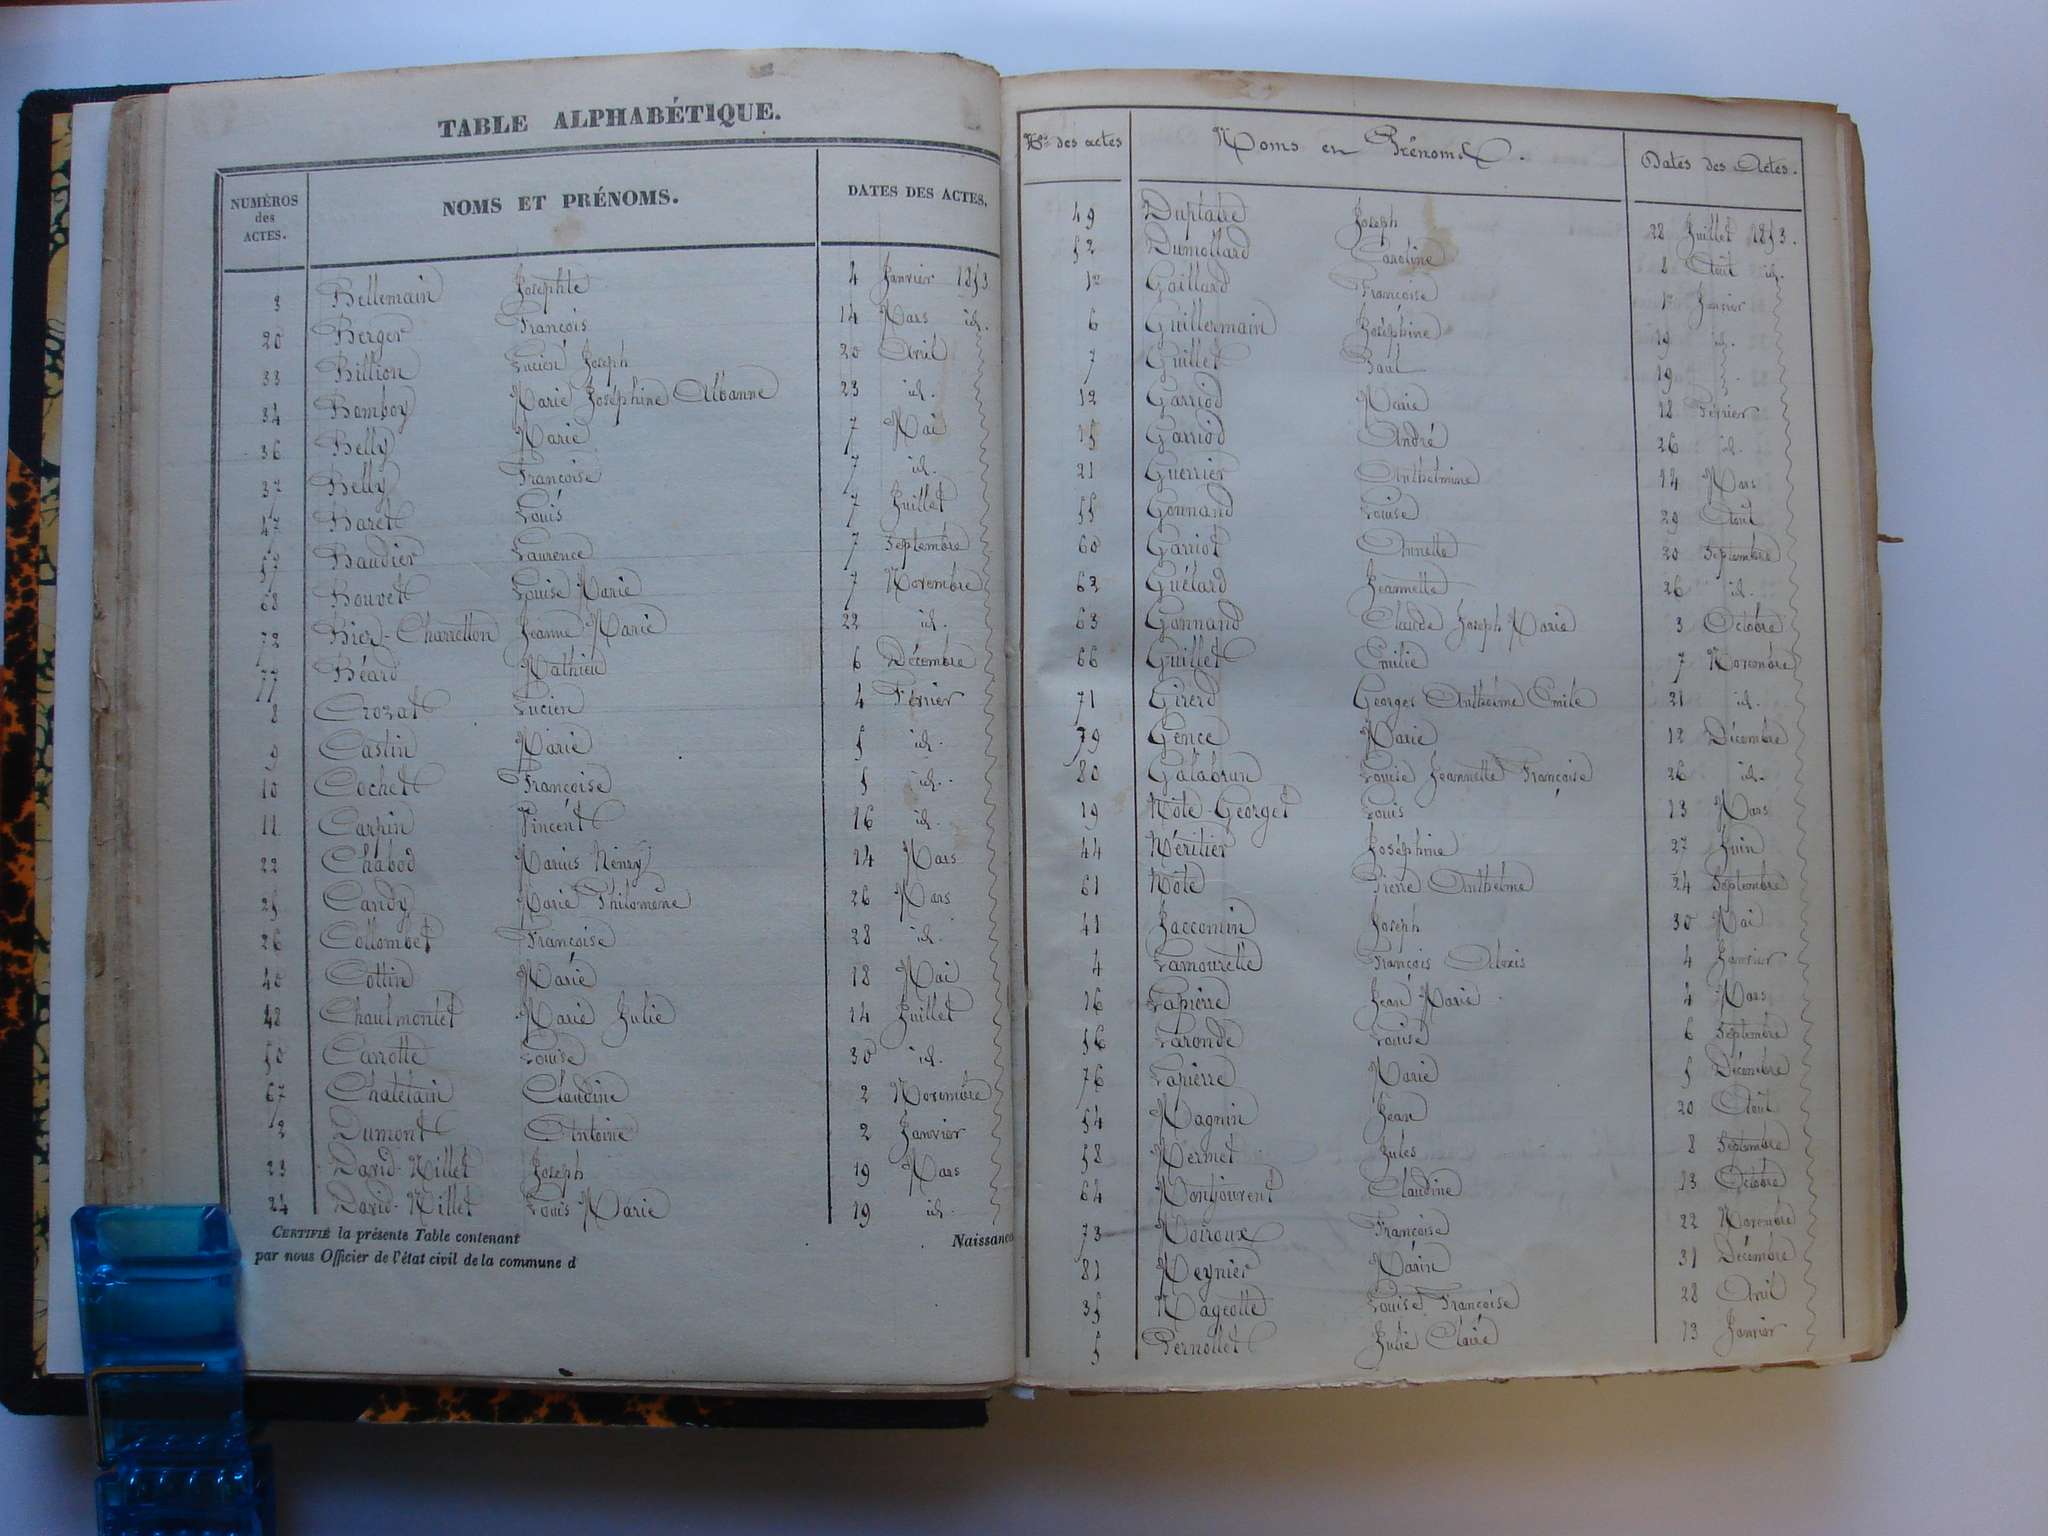 TABLE ALPHABÉTIQUE.
NUMÉROS des ACTES. NOMS ET PRÉNOMS. DATES DES ACTES.
3 Bellemain Josephte 4 Janvier 1853
20 Berger François 14 Mars id.
33 Billion Lucien Joseph 20 Avril
34 Bomboy Marie Joséphine Albanne 23 id.
36 Belly Marie 7 Mai
37 Belly Françoise 7 id.
47 Baret Louis 7 Juillet
57 Baudier Laurence 7 Septembre
68 Bouvet Louise Marie 7 Novembre
72 Bier-Charreton Jeanne Marie 22 id.
77 Béard Mathieu 6 Décembre
8 Crozat Lucien 4 Février
9 Castin Marie 5 id.
10 Cochet Françoise 5 id.
11 Carpin Vincent 16 id.
22 Chabod Marius Henry 14 Mars
25 Candy Marie Philomène 26 Mars
26 Collombet Françoise 28 id.
40 Cottin Marie 18 Mai
48 Chaulmontet Marie Julie 14 Juillet
50 Carrotte Louise 30 id.
67 Chatelain Claudine 2 Novembre
2 Dumont Antoine 2 Janvier
23 David-Millet Joseph 19 Mars
24 David-Millet Louis Marie 19 id.
CERTIFIÉ la présente Table contenant Naissance
par nous Officier de l'état civil de la commune d
Nos des actes Noms et Prénoms. Dates des Actes.
49 Duplatre Joseph 28 Juillet 1853.
52 Dumollard Caroline 8 Août id.
1er Gaillard Françoise 1er Janvier
6 Guillermain Joséphine 19 id.
7 Guillet Paul 19
12 Garriod Marie 18 Février
15 Garriod André 26 id.
21 Guerrier Anthelmine 14 Mars
55 Gonnand Louise 29 Août
60 Garriot Annette 20 Septembre
62 Guélard Jeannette 26 id.
63 Gonnand Claude Joseph Marie 3 Octobre
66 Guillet Emilie 7 Novembre
71 Girerd Georges Anthelme Emile 21 id.
79 Gence Marie 12 Décembre
80 Galabrun Louise Jeannette Françoise 26 id.
19 Hôte-Georget Louis 13 Mars
44 Héritier Joséphine 27 Juin
61 Hôte Pierre Anthelme 24 Septembre
41 Jaccomin Joseph 30 Mai
4 Lamourette François Alexis 4 Janvier
16 Lapierre Jean Marie 4 Mars
56 Laronde Louise 6 Septembre
76 Lapierre Marie 5 Décembre
54 Magnin Jean 20 Août
58 Mermet Jules 8 Septembre
64 Montjouvent Claudine 13 Octobre
73 Moiroux Françoise 22 Novembre
81 Meynier Marin 31 Décembre
35 Mageotte Louise Françoise 28 Avril
5 Pernollet Julie Claire 13 Janvier